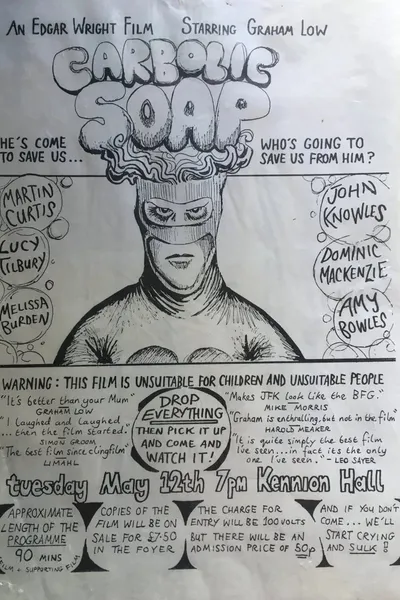 AN EDGAR WRIGHT FILM STARRING GRAHAM LOW
CARBOLIC
SOAP
HE'S COME
TO SAVE US...
WHO'S GOING TO
SAVE US FROM HIM?
MARTIN
CURTIS
LUCY
TILBURY
MELISSA
BURDEN
JOHN
KNOWLES
DOMINIC
MACKENZIE
AMY
BOWLES
WARNING: THIS FILM IS UNSUITABLE FOR CHILDREN AND UNSUITABLE PEOPLE
"It's better than your Mum"
GRAHAM LOW
"I laughed and laughed
...then the film started."
SIMON GROOM
"The best film since clingfilm"
LIMAHL
DROP
EVERYTHING
THEN PICK IT UP
AND COME AND
WATCH IT!
"Makes JFK look like the BFG."
MIKE MORRIS
"Graham is enthralling, but not in the film"
HAROLD MEAKER
"It is quite simply the best film
I've seen... in fact its the only
one I've seen." - LEO SAYER
tuesday May 12th 7pm Kennion Hall
APPROXIMATE
LENGTH OF THE
PROGRAMME
90 MINS
FILM + SUPPORTING FILM
COPIES OF THE
FILM WILL BE ON
SALE FOR £7.50
IN THE FOYER
THE CHARGE FOR
ENTRY WILL BE 100 VOLTS
BUT THERE WILL BE AN
ADMISSION PRICE OF 50p
AND IF YOU DON'T
COME... WE'LL
START CRYING
AND SULK!